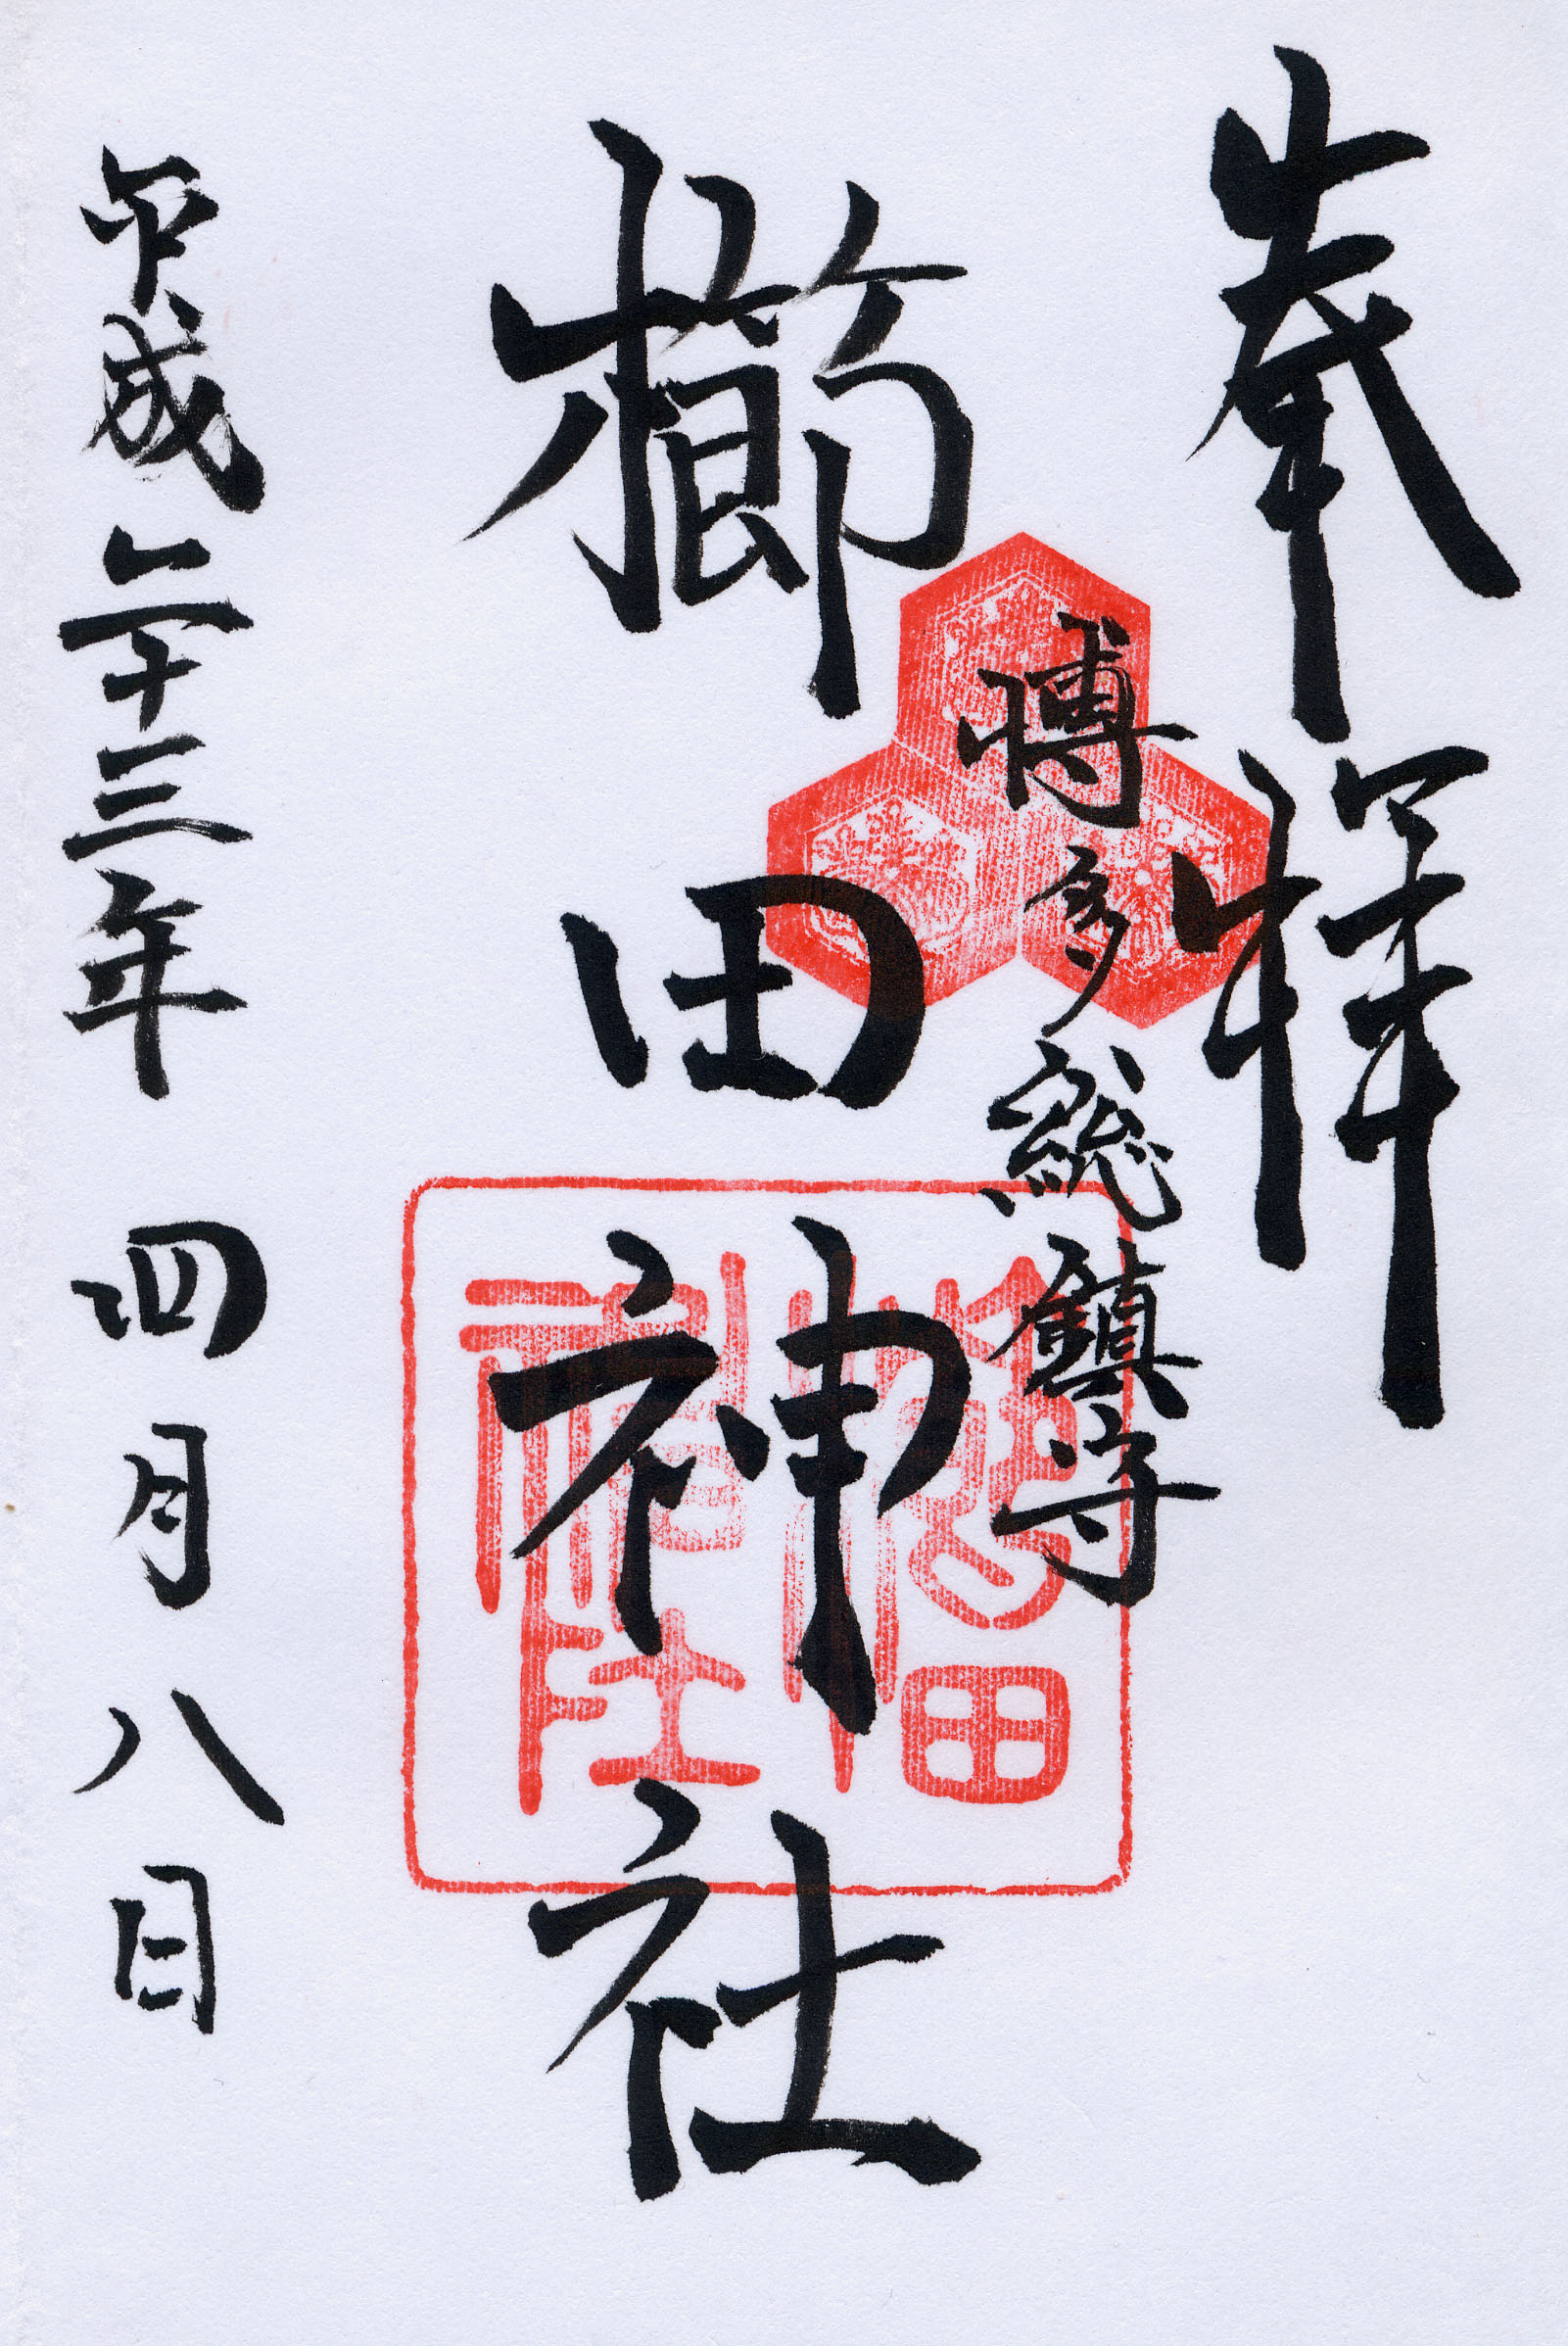 奉拝
博多総鎮守
櫛田神社
櫛田
神社
平成二十三年 四月 八日